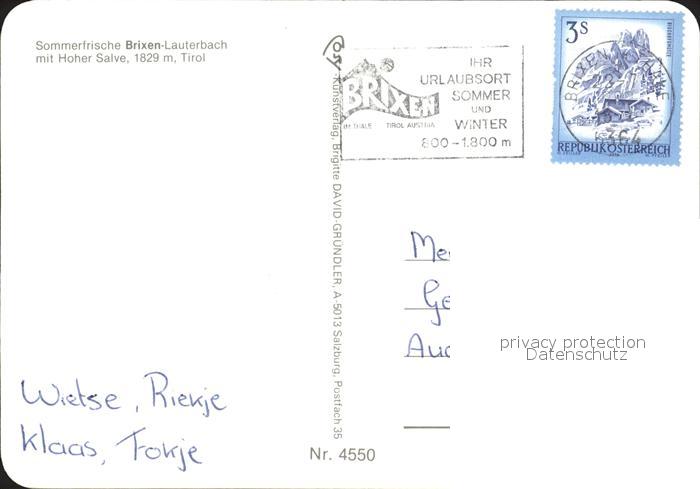 Sommerfrische Brixen-Lauterbach
mit Hoher Salve, 1829 m, Tirol
BRIXEN
IM THALE TIROL AUSTRIA
IHR
URLAUBSORT
SOMMER
UND
WINTER
800-1.800 m
3S
BRIXEN
6364
REPUBLIK ÖSTERREICH
Kunstverlag, Brigitte DAVID-GRÜNDLER, A-5013 Salzburg, Postfach 35
Me
Ge
Auc
privacy protection
Datenschutz
Wietse, Riekje
Klaas, Fokje
Nr. 4550